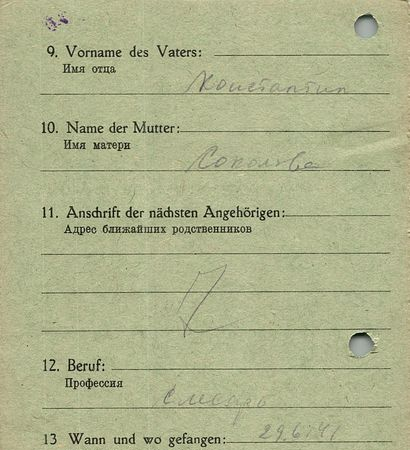 9. Vorname des Vaters:
Имя отца
Константин
10. Name der Mutter:
Имя матери
Соколова
11. Anschrift der nächsten Angehörigen:
Адрес ближайших родственников
12. Beruf:
Профессия
слесарь
13 Wann und wo gefangen: 29.6.41